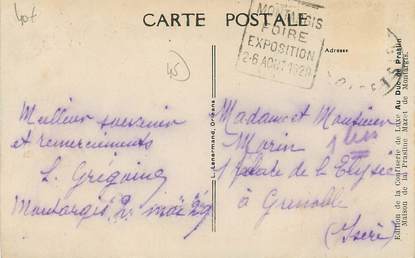 40f
CARTE POSTALE
MONTARGIS
FOIRE
EXPOSITION
2-6 AOUT 1929
Adresse
45
Meilleur souvenir
et remerciements
L. Grégoire
Montargis, 2 mai 29
L. Lenormand, Orléans
Madame et Monsieur
Morin
de la
à Grenoble
(Isère)
Edition de la Confiserie de Luxe Au Duc de Praslin
Maison de la Prasline Mazet de Montargis.